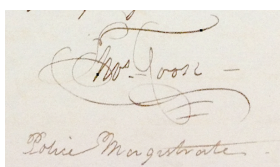 Thos. Foose
Police Magistrate